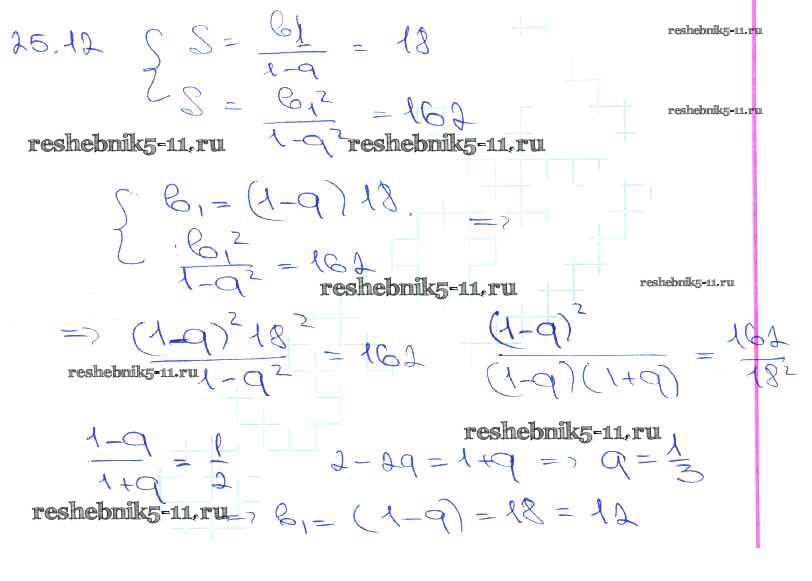 25.12 { S = b₁/(1-q) = 18 reshebnik5-11.ru
S = b₁²/(1-q²) = 162 reshebnik5-11.ru
reshebnik5-11.ru reshebnik5-11.ru
{ b₁ = (1-q) 18. =>
b₁²/(1-q²) = 162
reshebnik5-11.ru reshebnik5-11.ru
=> (1-q)² 18²/(1-q²) = 162 (1-q)²/((1-q)(1+q)) = 162/18²
reshebnik5-11.ru
reshebnik5-11.ru
(1-q)/(1+q) = 1/2 2-2q = 1+q => q = 1/3
reshebnik5-11.ru => b₁ = (1-q) = 18 = 12